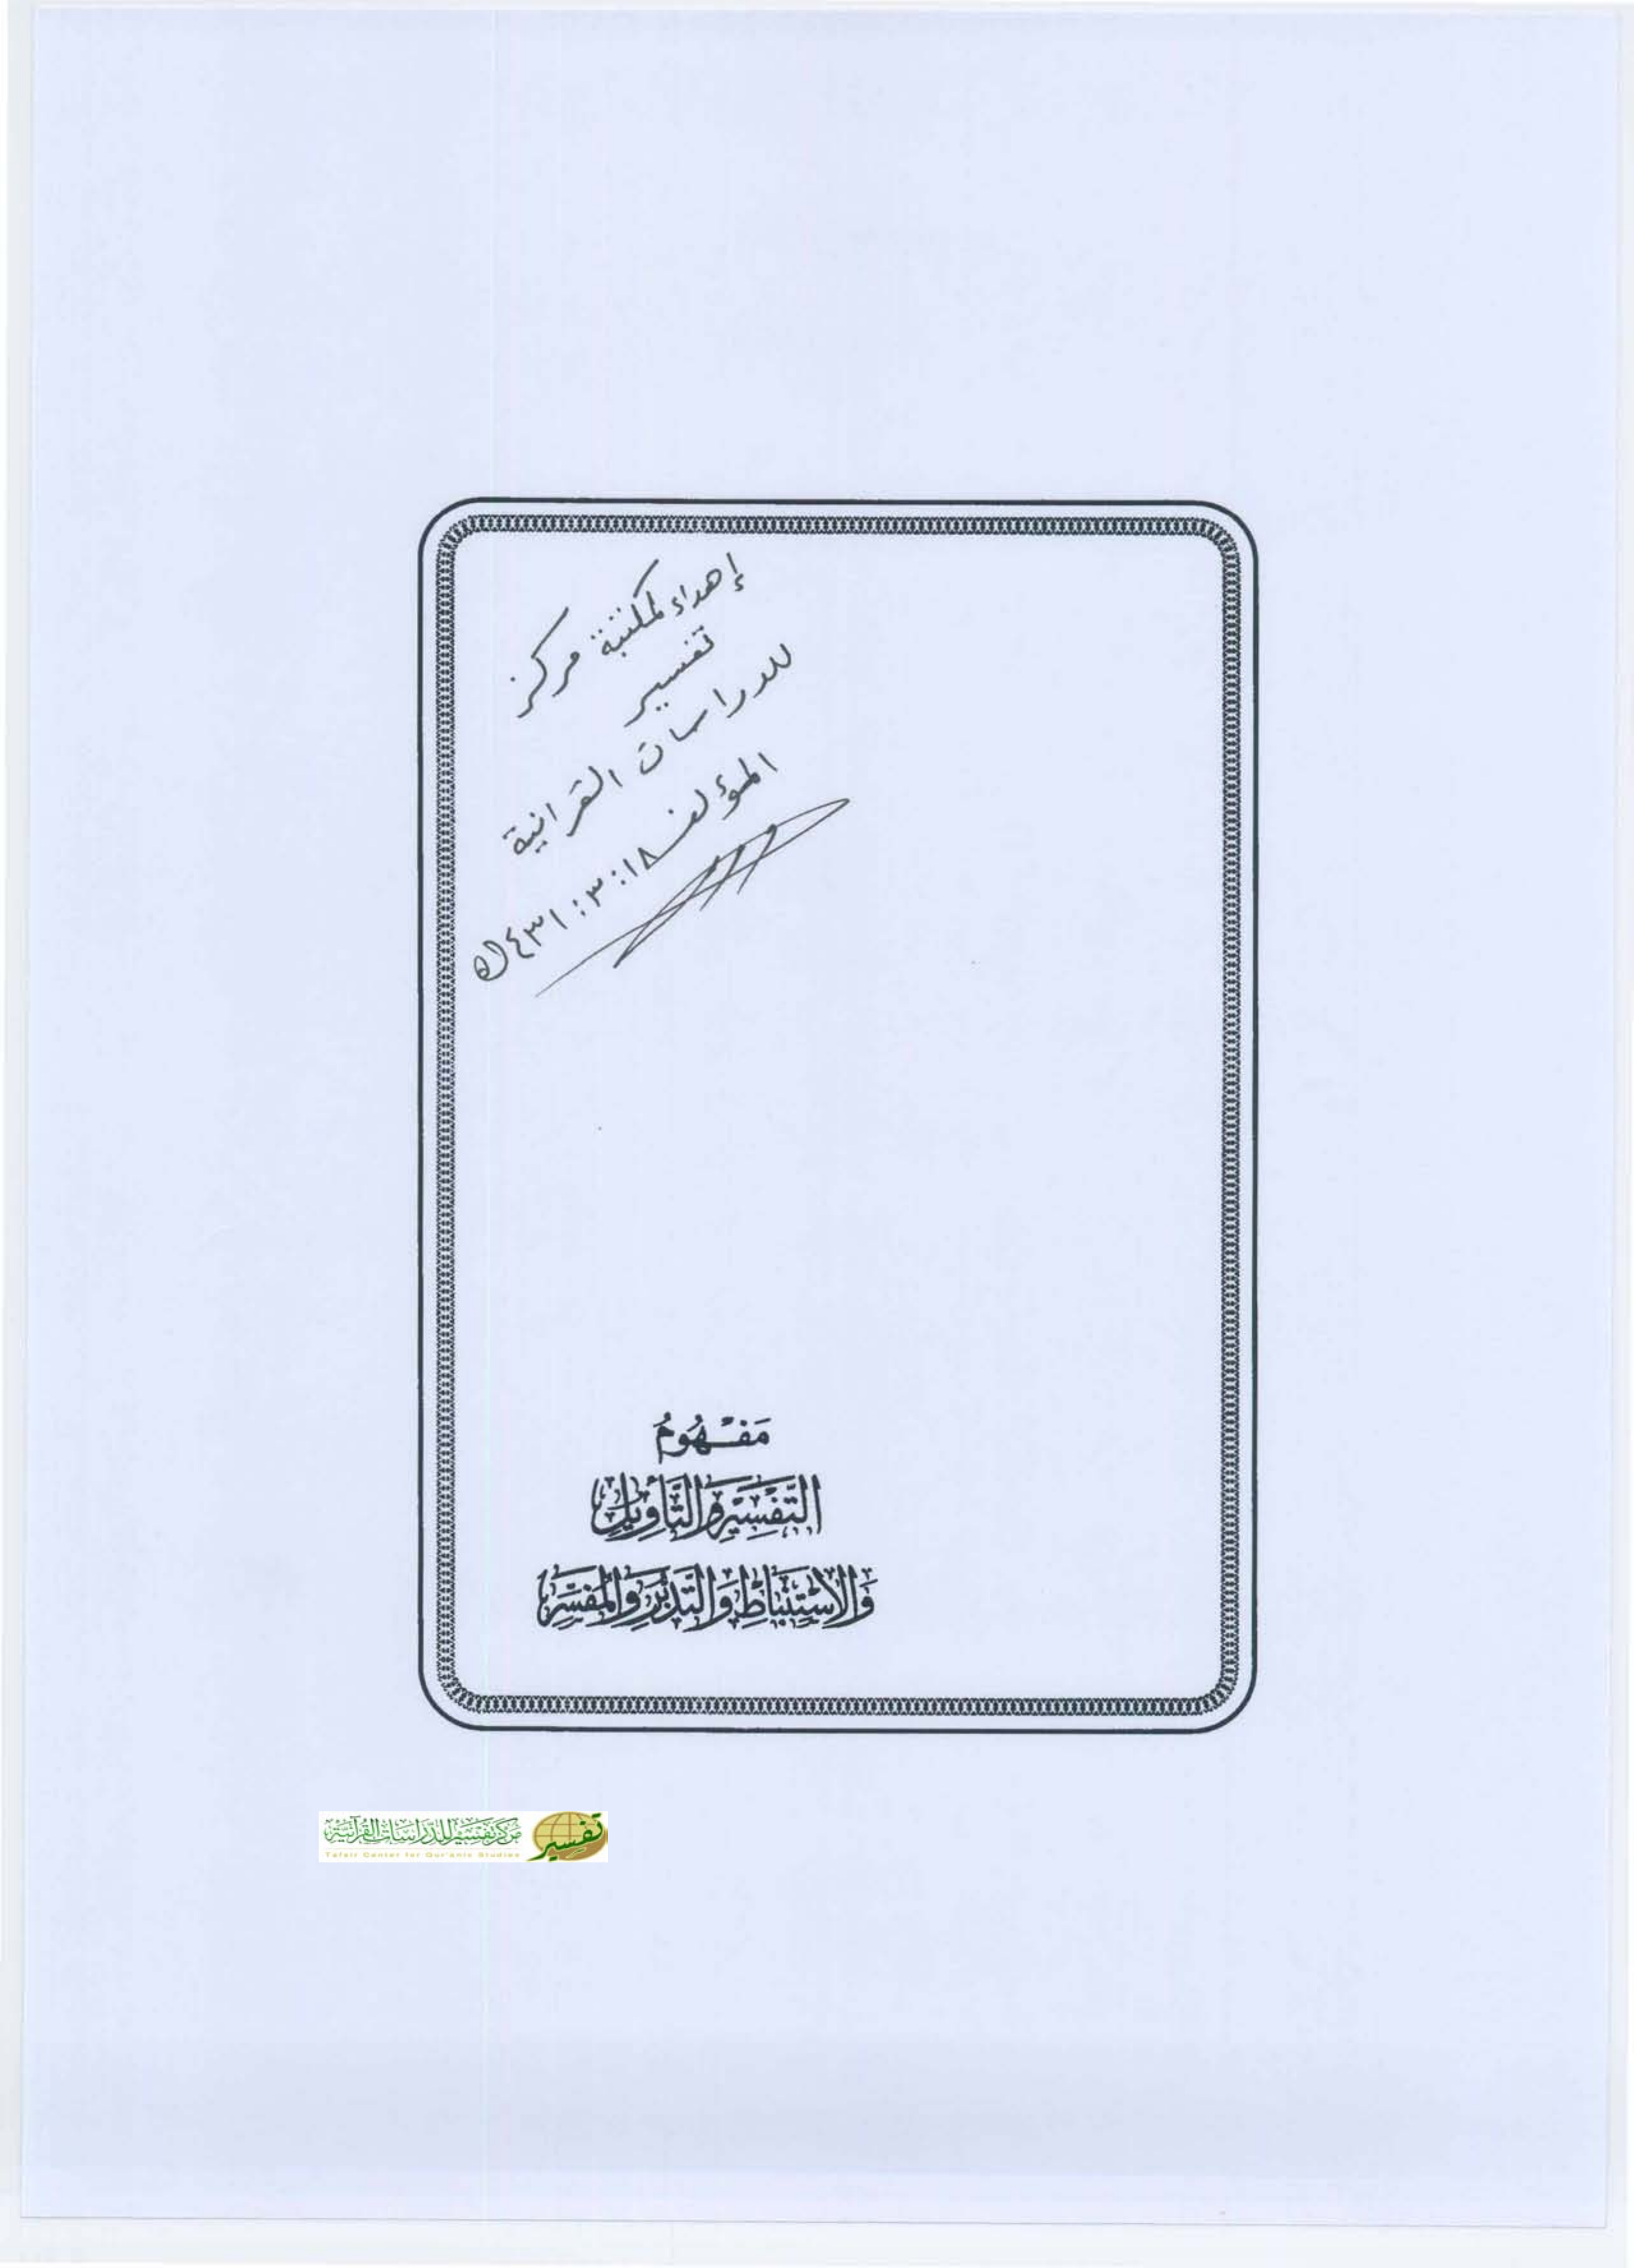 إهداء لمكتبة مركز
تفسير
للدراسات القرانية
المؤلف ١٨ : ٣ : ١٤٣١ هـ
مَفْهُومُ
التَّفْسِيْرِ وَالتَّأْوِيْلِ
وَالاسْتِنْبَاطِ وَالتَّدَبُّرِ وَالمُفَسِّرِ
مركز تفسير للدراسات القرآنية
تفسير
Tafsir Center for Qur'anic Studies